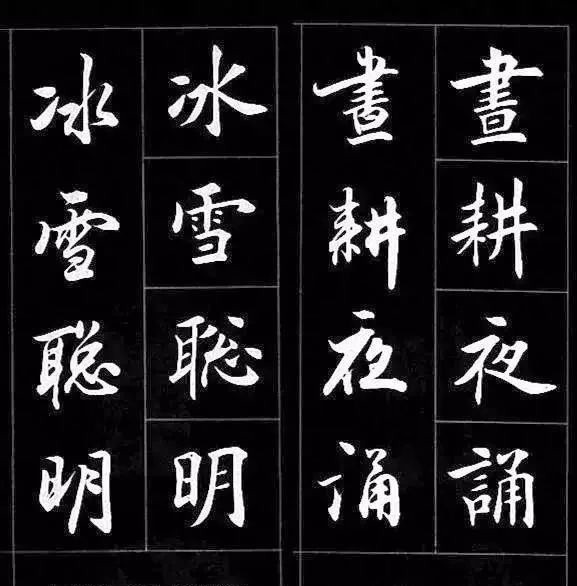 晝耕夜誦
晝耕夜誦
冰雪聰明
冰雪聰明